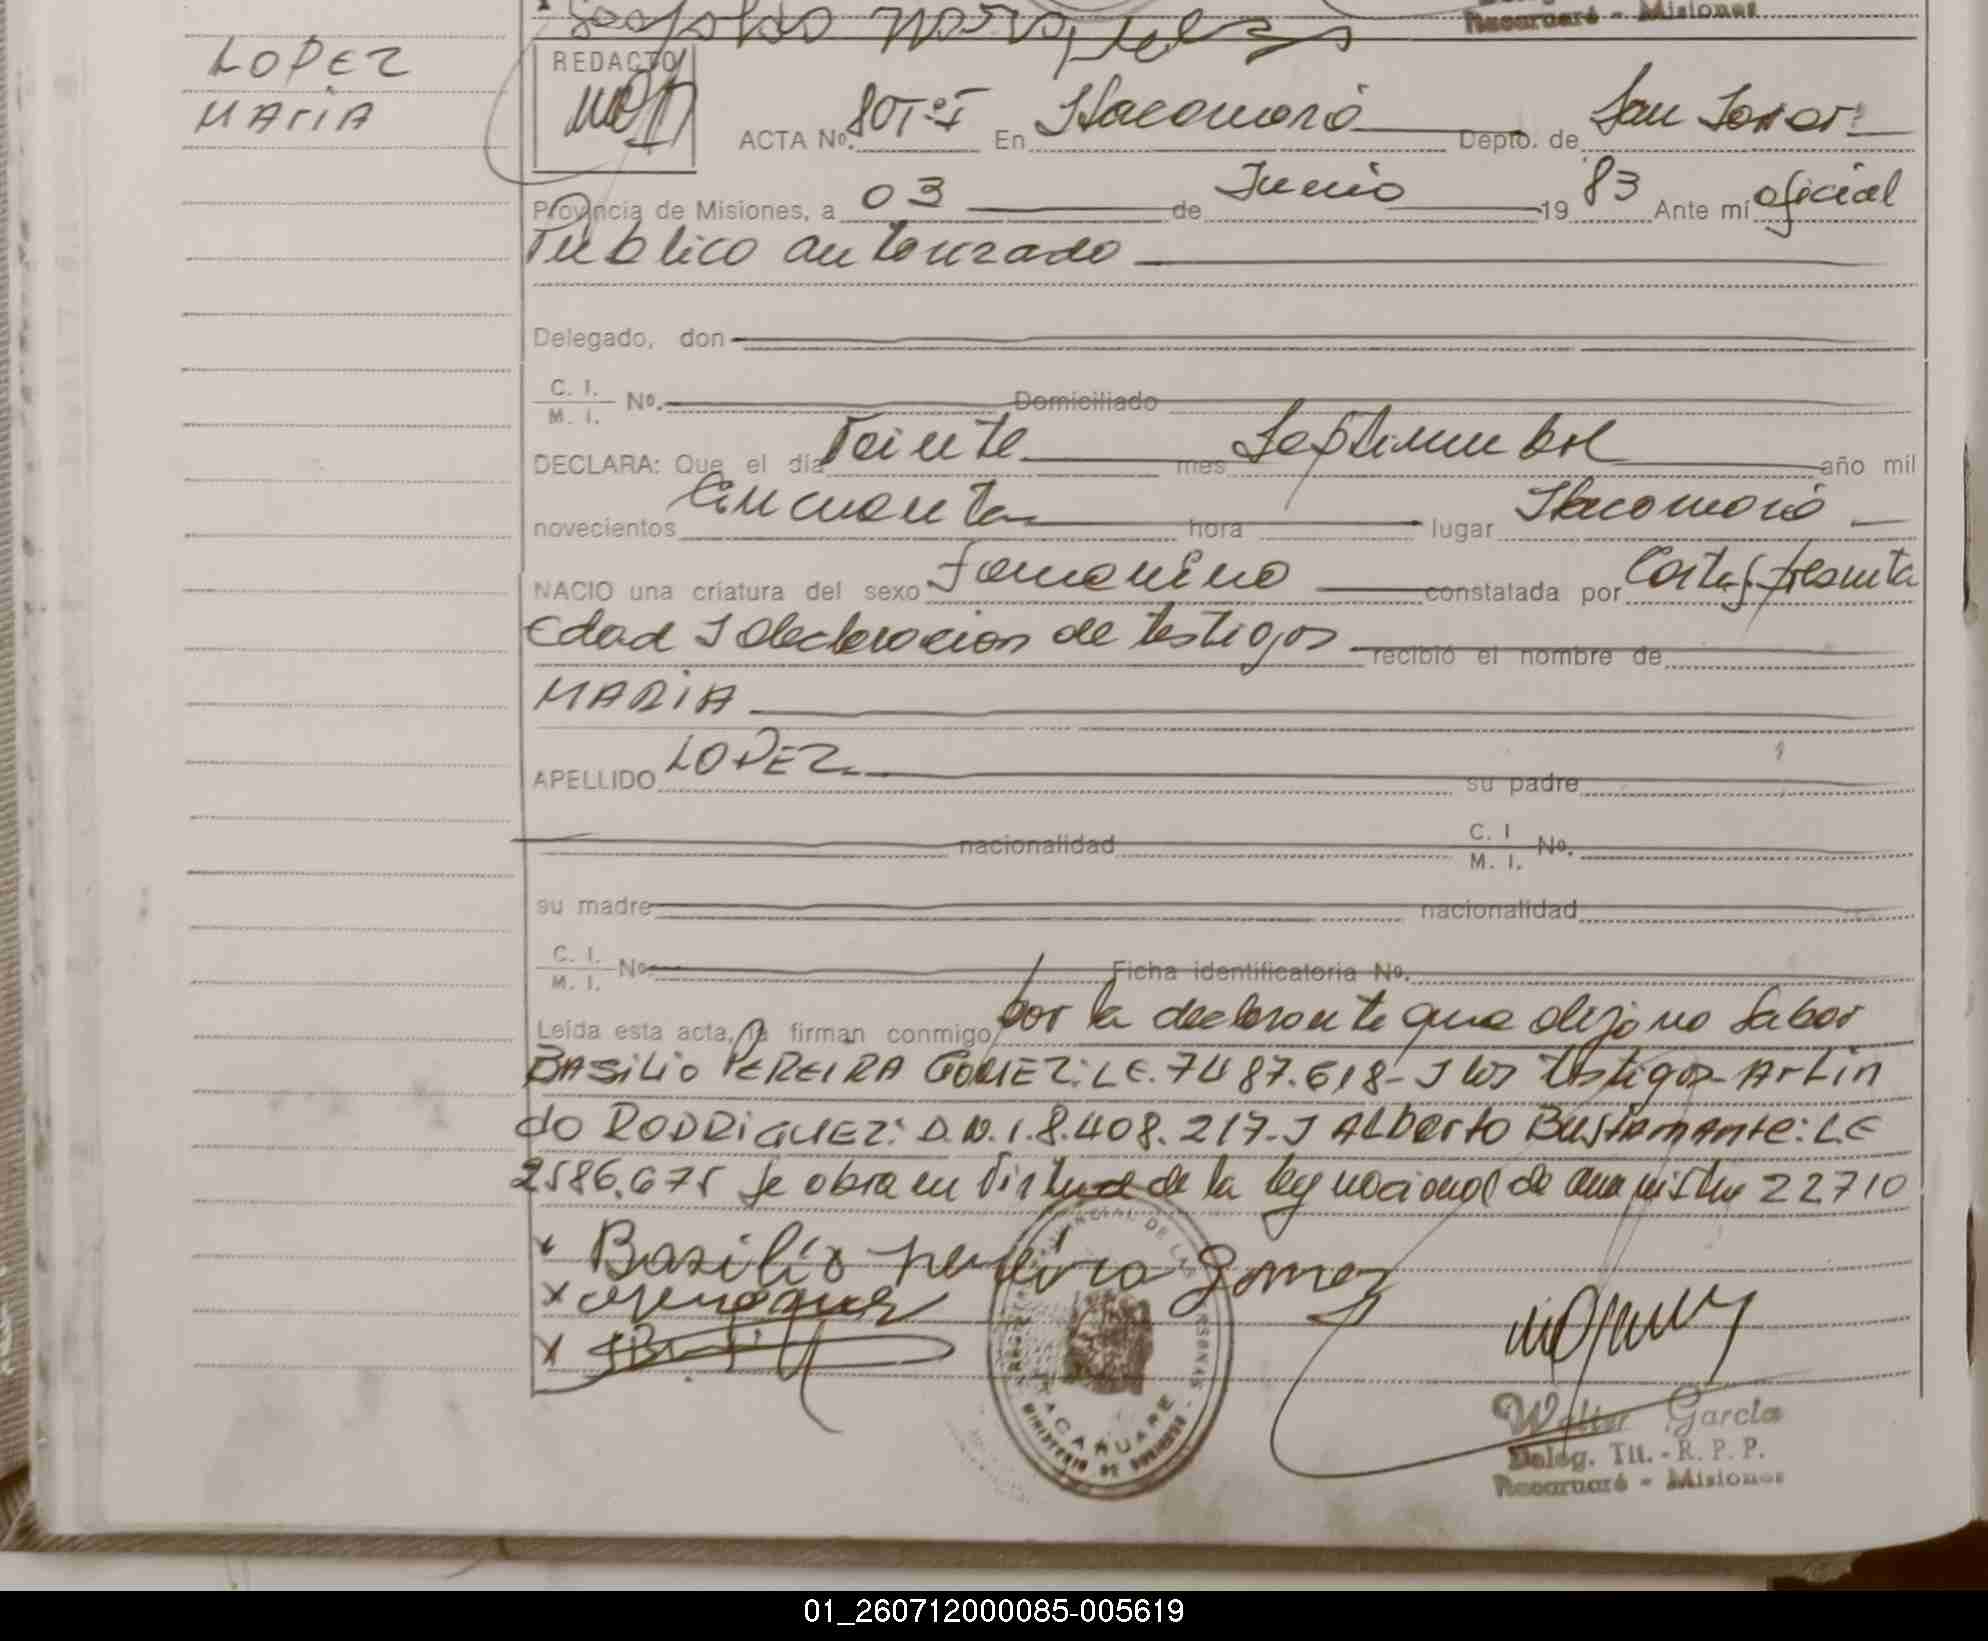 Racaruaré - Misiones
LOPEZ
MARIA
REDACTO
ACTA Nº. 80T:I En Itacaruaré Depto. de San Javier
Provincia de Misiones, a 03 de Junio 19 83 Ante mí oficial
Publico autorizado
Delegado, don
C. I.
M. I. Nº. Domiciliado
DECLARA: Que el día Veinte mes Septiembre año mil
novecientos Cincuenta hora lugar Itacaruaré
NACIO una criatura del sexo Femenino constatada por
Edad y declaracion de testigos recibió el nombre de
MARIA
APELLIDO LOPEZ su padre
nacionalidad C. I
M. I. Nº.
su madre nacionalidad
C. I.
M. I. Nº Ficha identificatoria Nº.
Leída esta acta, la firman conmigo por la declarante que dijo no saber
BASILIO PEREIRA GOMEZ: LE. 7487.618- y los testigos- Arlin
do RODRIGUEZ: D.N.I. 8.408.217- y ALberto BustAmAnte: LE
2586.675 se obra en virtud de la ley nacional de amnistia 22710
x Basilio Pereira Gomez
x
x
Walter García
Deleg. Tit. - R. P. P.
Racaruaré - Misiones
01_260712000085-005619